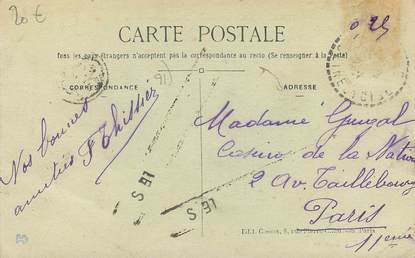 20 €
0,25
CARTE POSTALE
Tous les pays étrangers n'acceptent pas la correspondance au recto (Se renseigner à la poste)
CORRESPONDANCE
ADRESSE
Nos bonnes
amitiés
Madame
Casino de la Nation
2 Av. Taillebourg
Paris
11eme
LE S
LE S